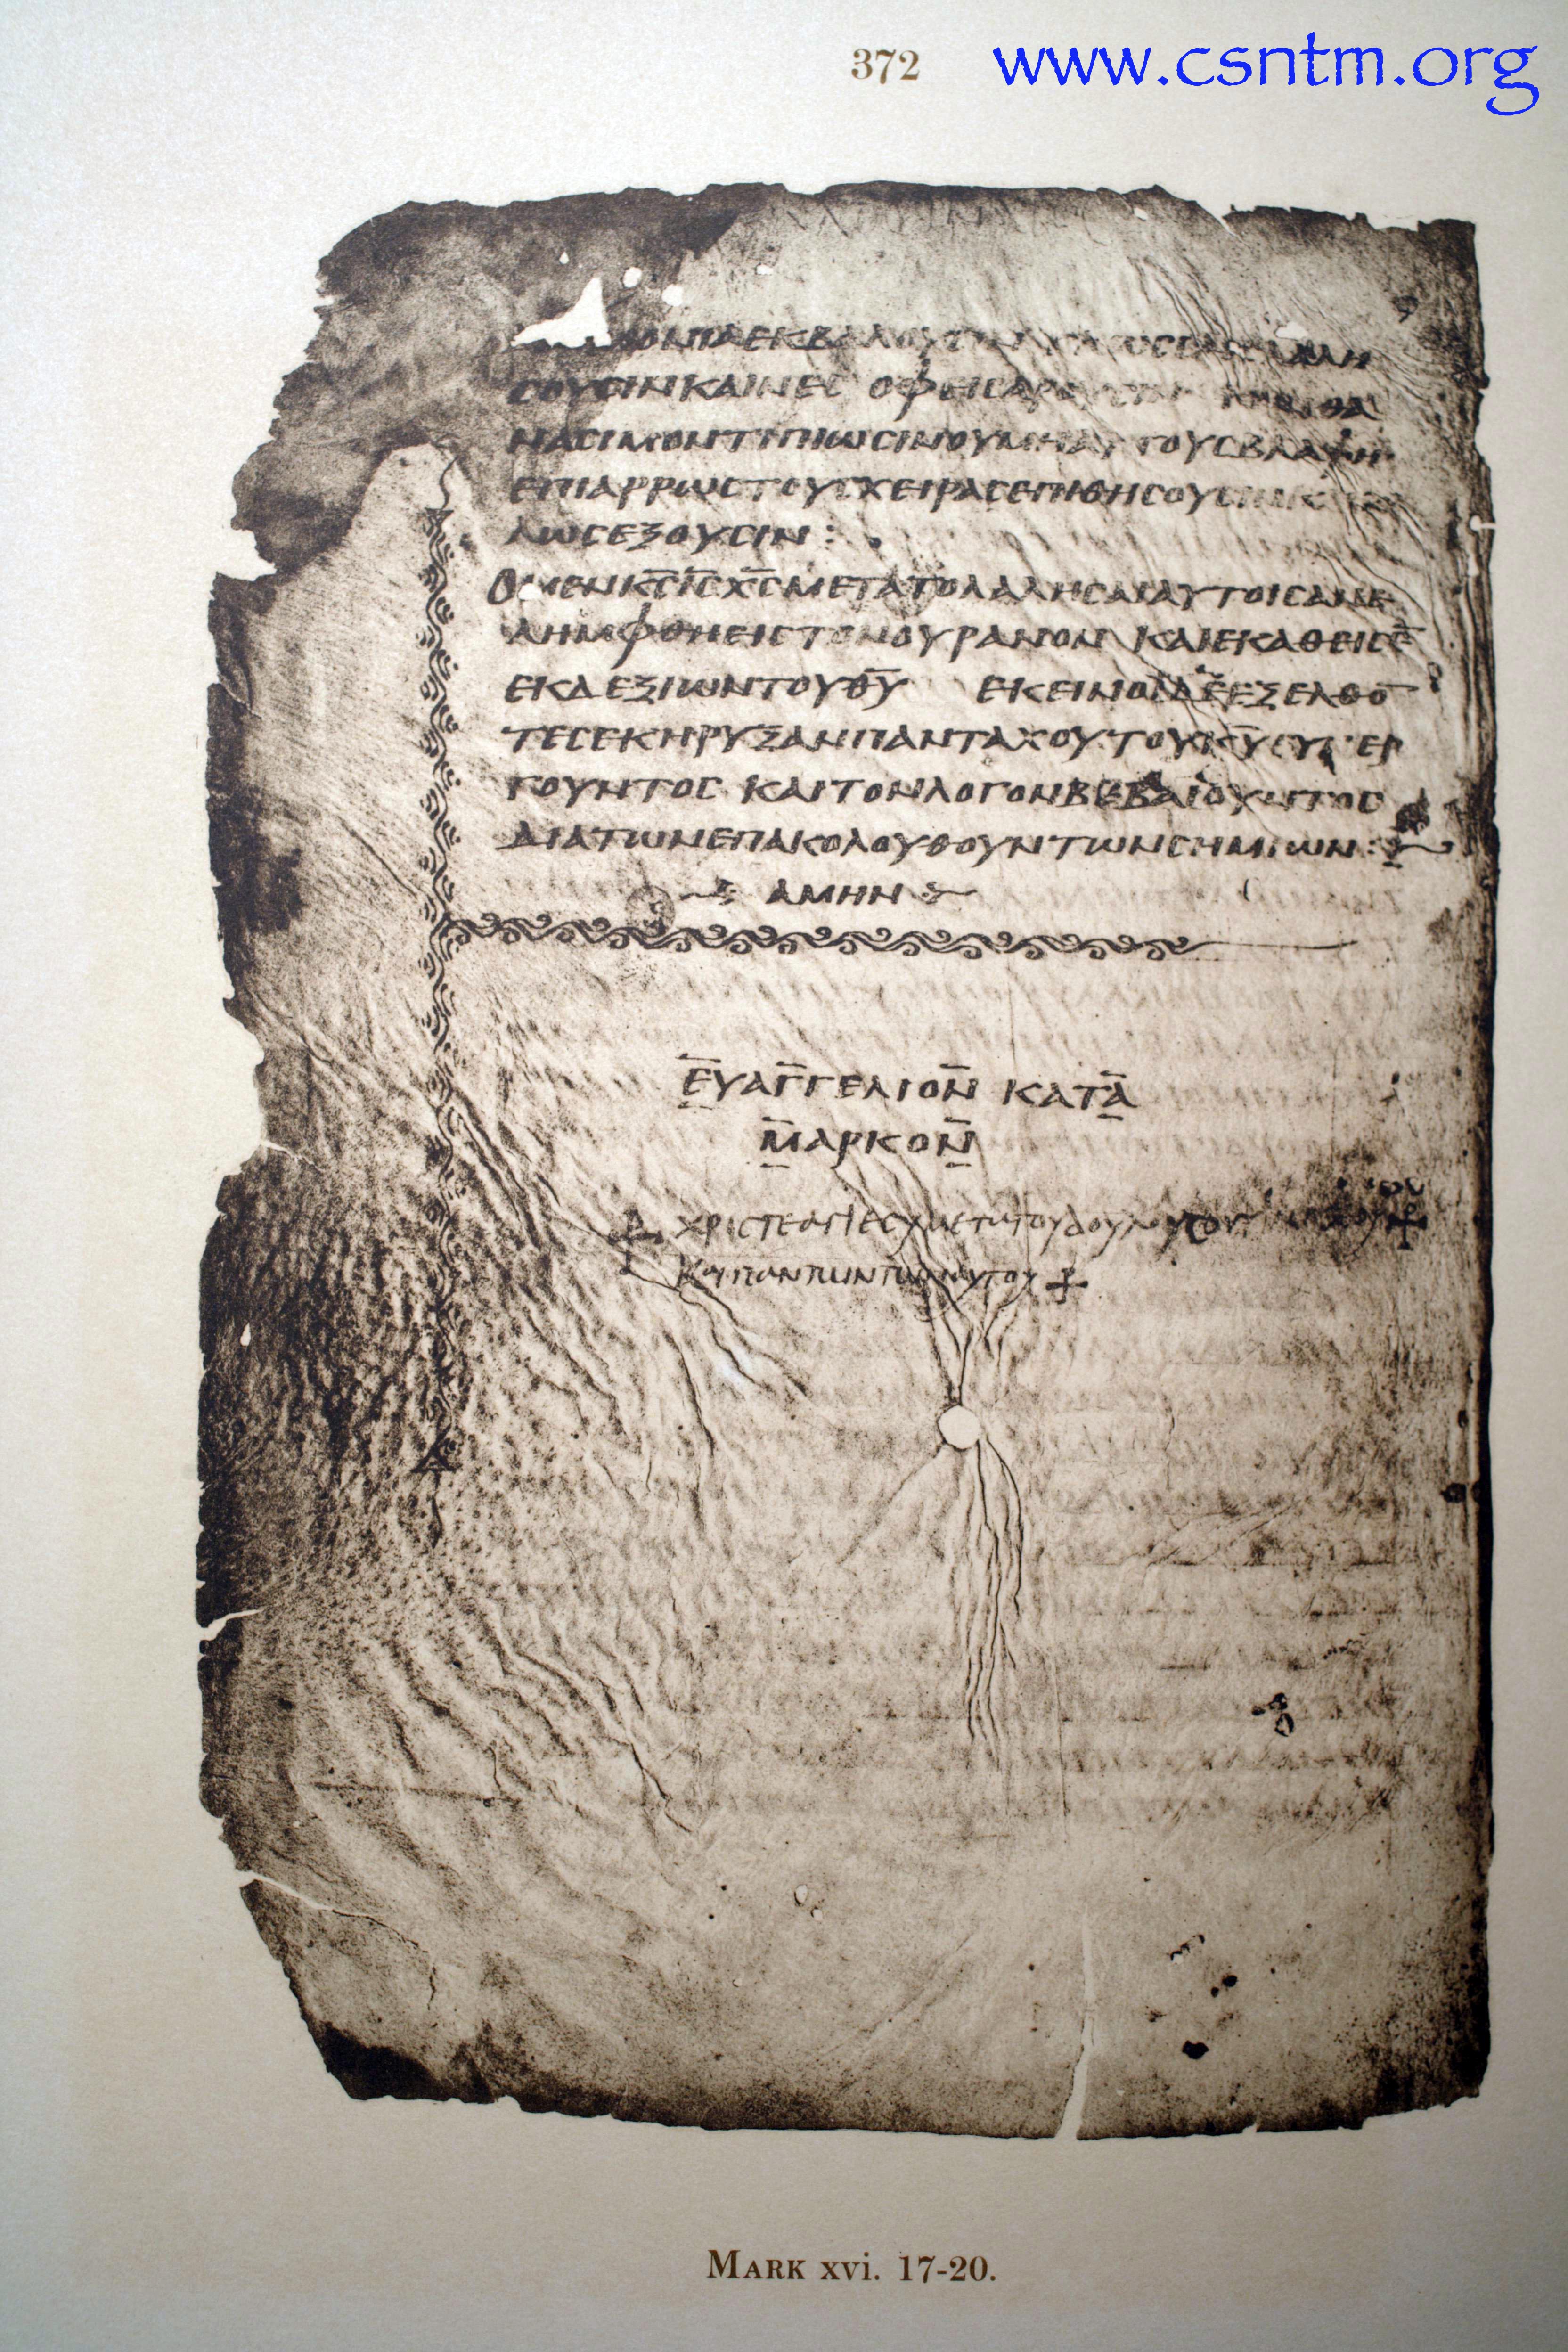 372
www.csntm.org
ΜΟΝΙΑΕΚΒΑΛΟΥΣΙΝ
ϹΟΥϹΙΝΚΑΙΝΕϹ ΟΦΕΙϹΑΡΟΥϹΙΝ
ΝΑϹΙΜΟΝΤΙΠΙΩϹΙΝΟΥΜΗΑΥΤΟΥϹΒΛΑΨΗ
ΕΠΙΑΡΡΩϹΤΟΥϹΧΕΙΡΑϹΕΠΙΘΗϹΟΥϹΙΝΚ
ΛΩϹΕΞΟΥϹΙΝ :
ΟΜΕΝΚ̅Ϲ̅Ι̅Ϲ̅Χ̅Ϲ̅ΜΕΤΑΤΟΛΑΛΗϹΑΙΑΥΤΟΙϹΑΝΕ
ΛΗΜΦΘΗΕΙϹΤΟΝΟΥΡΑΝΟΝ ΚΑΙΕΚΑΘΕΙϹΕ̅
ΕΚΔΕΞΙΩΝΤΟΥΘ̅Υ̅ ΕΚΕΙΝΟΙΔΕΕΞΕΛΘΟ̅
ΤΕϹΕΚΗΡΥΞΑΝΠΑΝΤΑΧΟΥΤΟΥΚ̅Υ̅ϹΥΝΕΡ
ΓΟΥΝΤΟϹ ΚΑΙΤΟΝΛΟΓΟΝΒΕΒΑΙΟΥΝΤΟϹ
ΔΙΑΤΩΝΕΠΑΚΟΛΟΥΘΟΥΝΤΩΝϹΗΜΙΩΝ :
ΑΜΗΝ
Ε̅ΥΑΓ̅ΓΕΛΙΟΝ̅ ΚΑΤΑ̅
Μ̅ΑΡΚΟΝ̅
ΧΡΙϹΤΕΑΓΙΕϹΥΜΕΤΑΤΟΥΔΟΥΛΟΥϹΟΥ
ΚΑΙΠΑΝΤΩΝΤΩΝΑΥΤΟΥ
MARK xvi. 17-20.